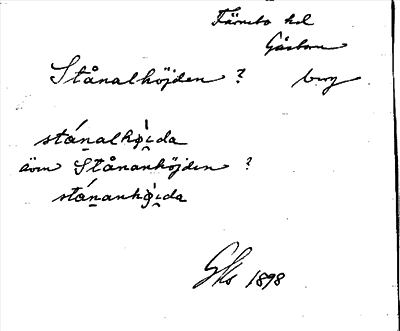 Färnebo hd
Gåsborn
Stånalhöjden ? berg
stánalhø̀i̯da
även Stånanhöjden ?
stánanhø̀i̯da
Gks 1898